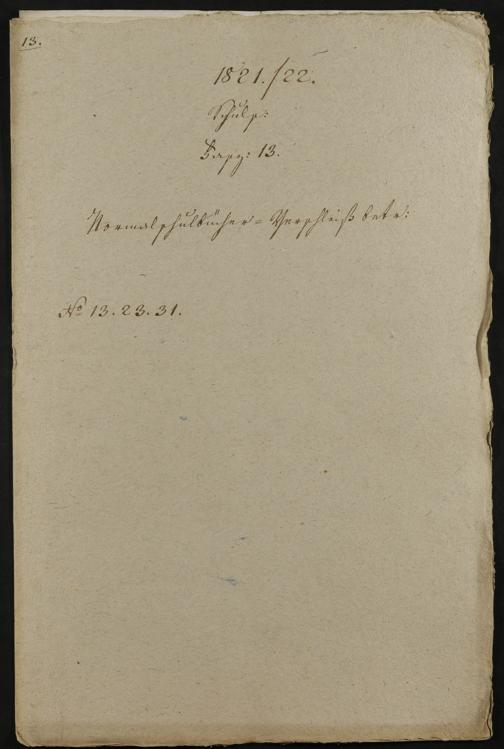 13.
1821./22.
Schulf:
Fasz: 13.
Normalschulbücher = Verschleiß betr:
No 13. 23. 31.